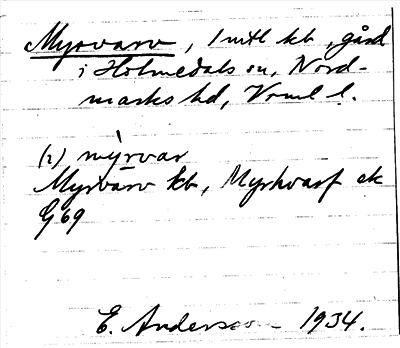 Myrvarv, 1 mtl kb, gård
i Holmedals sn, Nord-
marks hd, Vrml l.
(2) mỳrvar
Myrvarv kb, Myrhvarf ek
G 69
E. Andersson 1934.